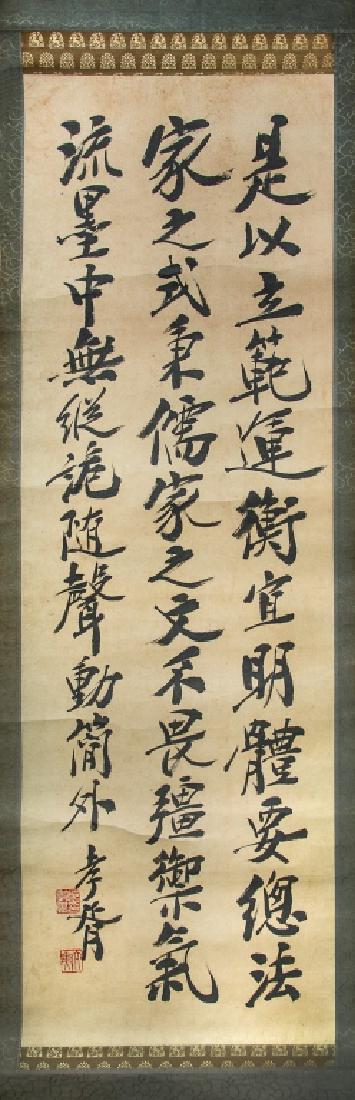 是以立範運衡宜明體要總法
家之式秉儒家之文不畏彊禦氣
流墨中無縱詭随聲動簡外
孝胥